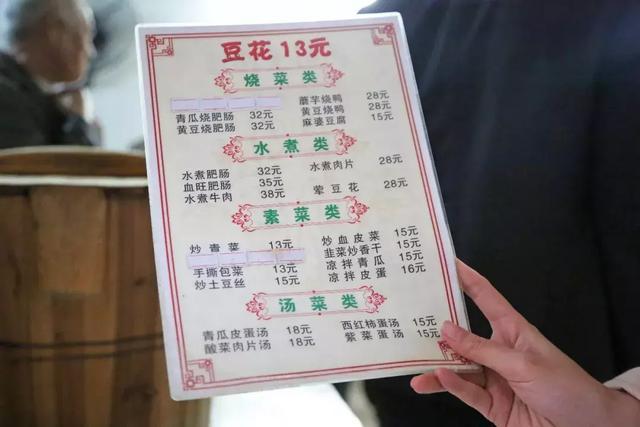 豆花13元
烧菜类
青瓜烧肥肠 32元
黄豆烧肥肠 32元
蘑芋烧鸭 28元
黄豆烧鸭 28元
麻婆豆腐 15元
水煮类
水煮肥肠 32元
血旺肥肠 35元
水煮牛肉 38元
水煮肉片 28元
荤豆花 28元
素菜类
炒青菜 13元
手撕包菜 13元
炒土豆丝 15元
炒血皮菜 15元
韭菜炒香干 15元
凉拌青瓜 15元
凉拌皮蛋 16元
汤菜类
青瓜皮蛋汤 18元
酸菜肉片汤 18元
西红柿蛋汤 15元
紫菜蛋汤 15元